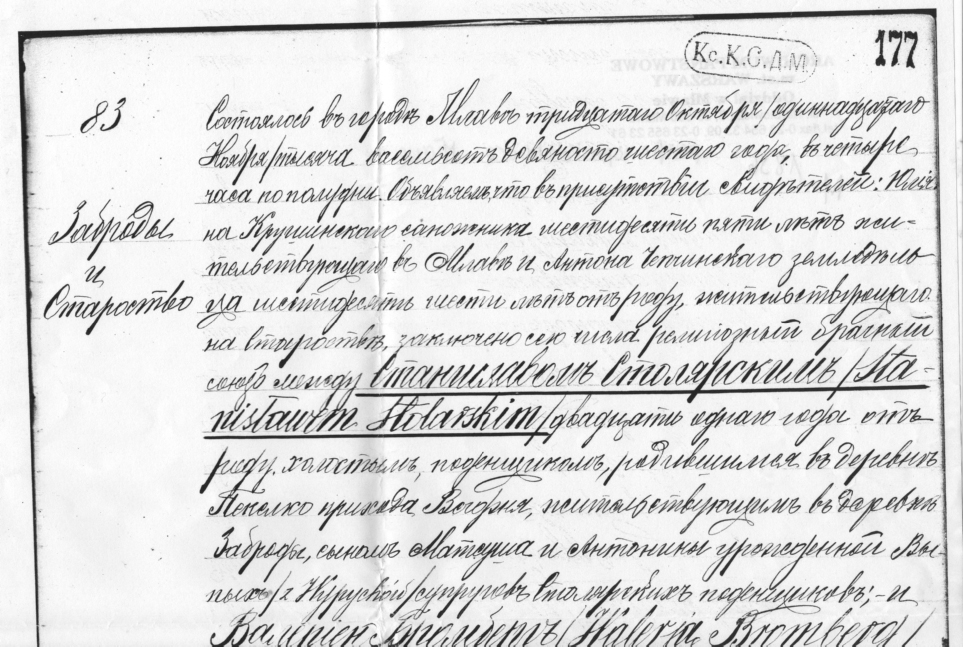 Кс. К. С. Д. М.
177
83
Заброды
и
Староство
Состоялось въ городѣ Млавѣ тридцатаго Октября / одиннадцатаго
Ноября / тысяча восемьсотъ девяносто шестаго года, въ четыре
часа по полудни. Объявляемъ, что въ присутствіи свидѣтелей: Юлія-
на Крушинскаго сапожника шестидесяти пяти лѣтъ жи-
тельствующаго въ Млавѣ и, Антона земледѣль-
ца шестидесяти шести лѣтъ отъ роду, жительствующаго
на Староствѣ, заключено сего числа религіозный брачный
союзъ между Станиславомъ Столярскимъ / Sta-
nisławem Stolarskim / двадцати одного года отъ
роду, холостымъ, поденщикомъ, родившимся въ деревнѣ
Пекелко прихода жительствующимъ въ деревнѣ
Заброды, сыномъ Матеуша и Антонины урожденной
супруговъ Столярскихъ поденщиковъ; - и
Бромбергъ / Walerią Bromberg /